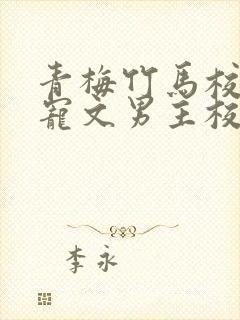 青梅竹马校
宠文男主校
李永